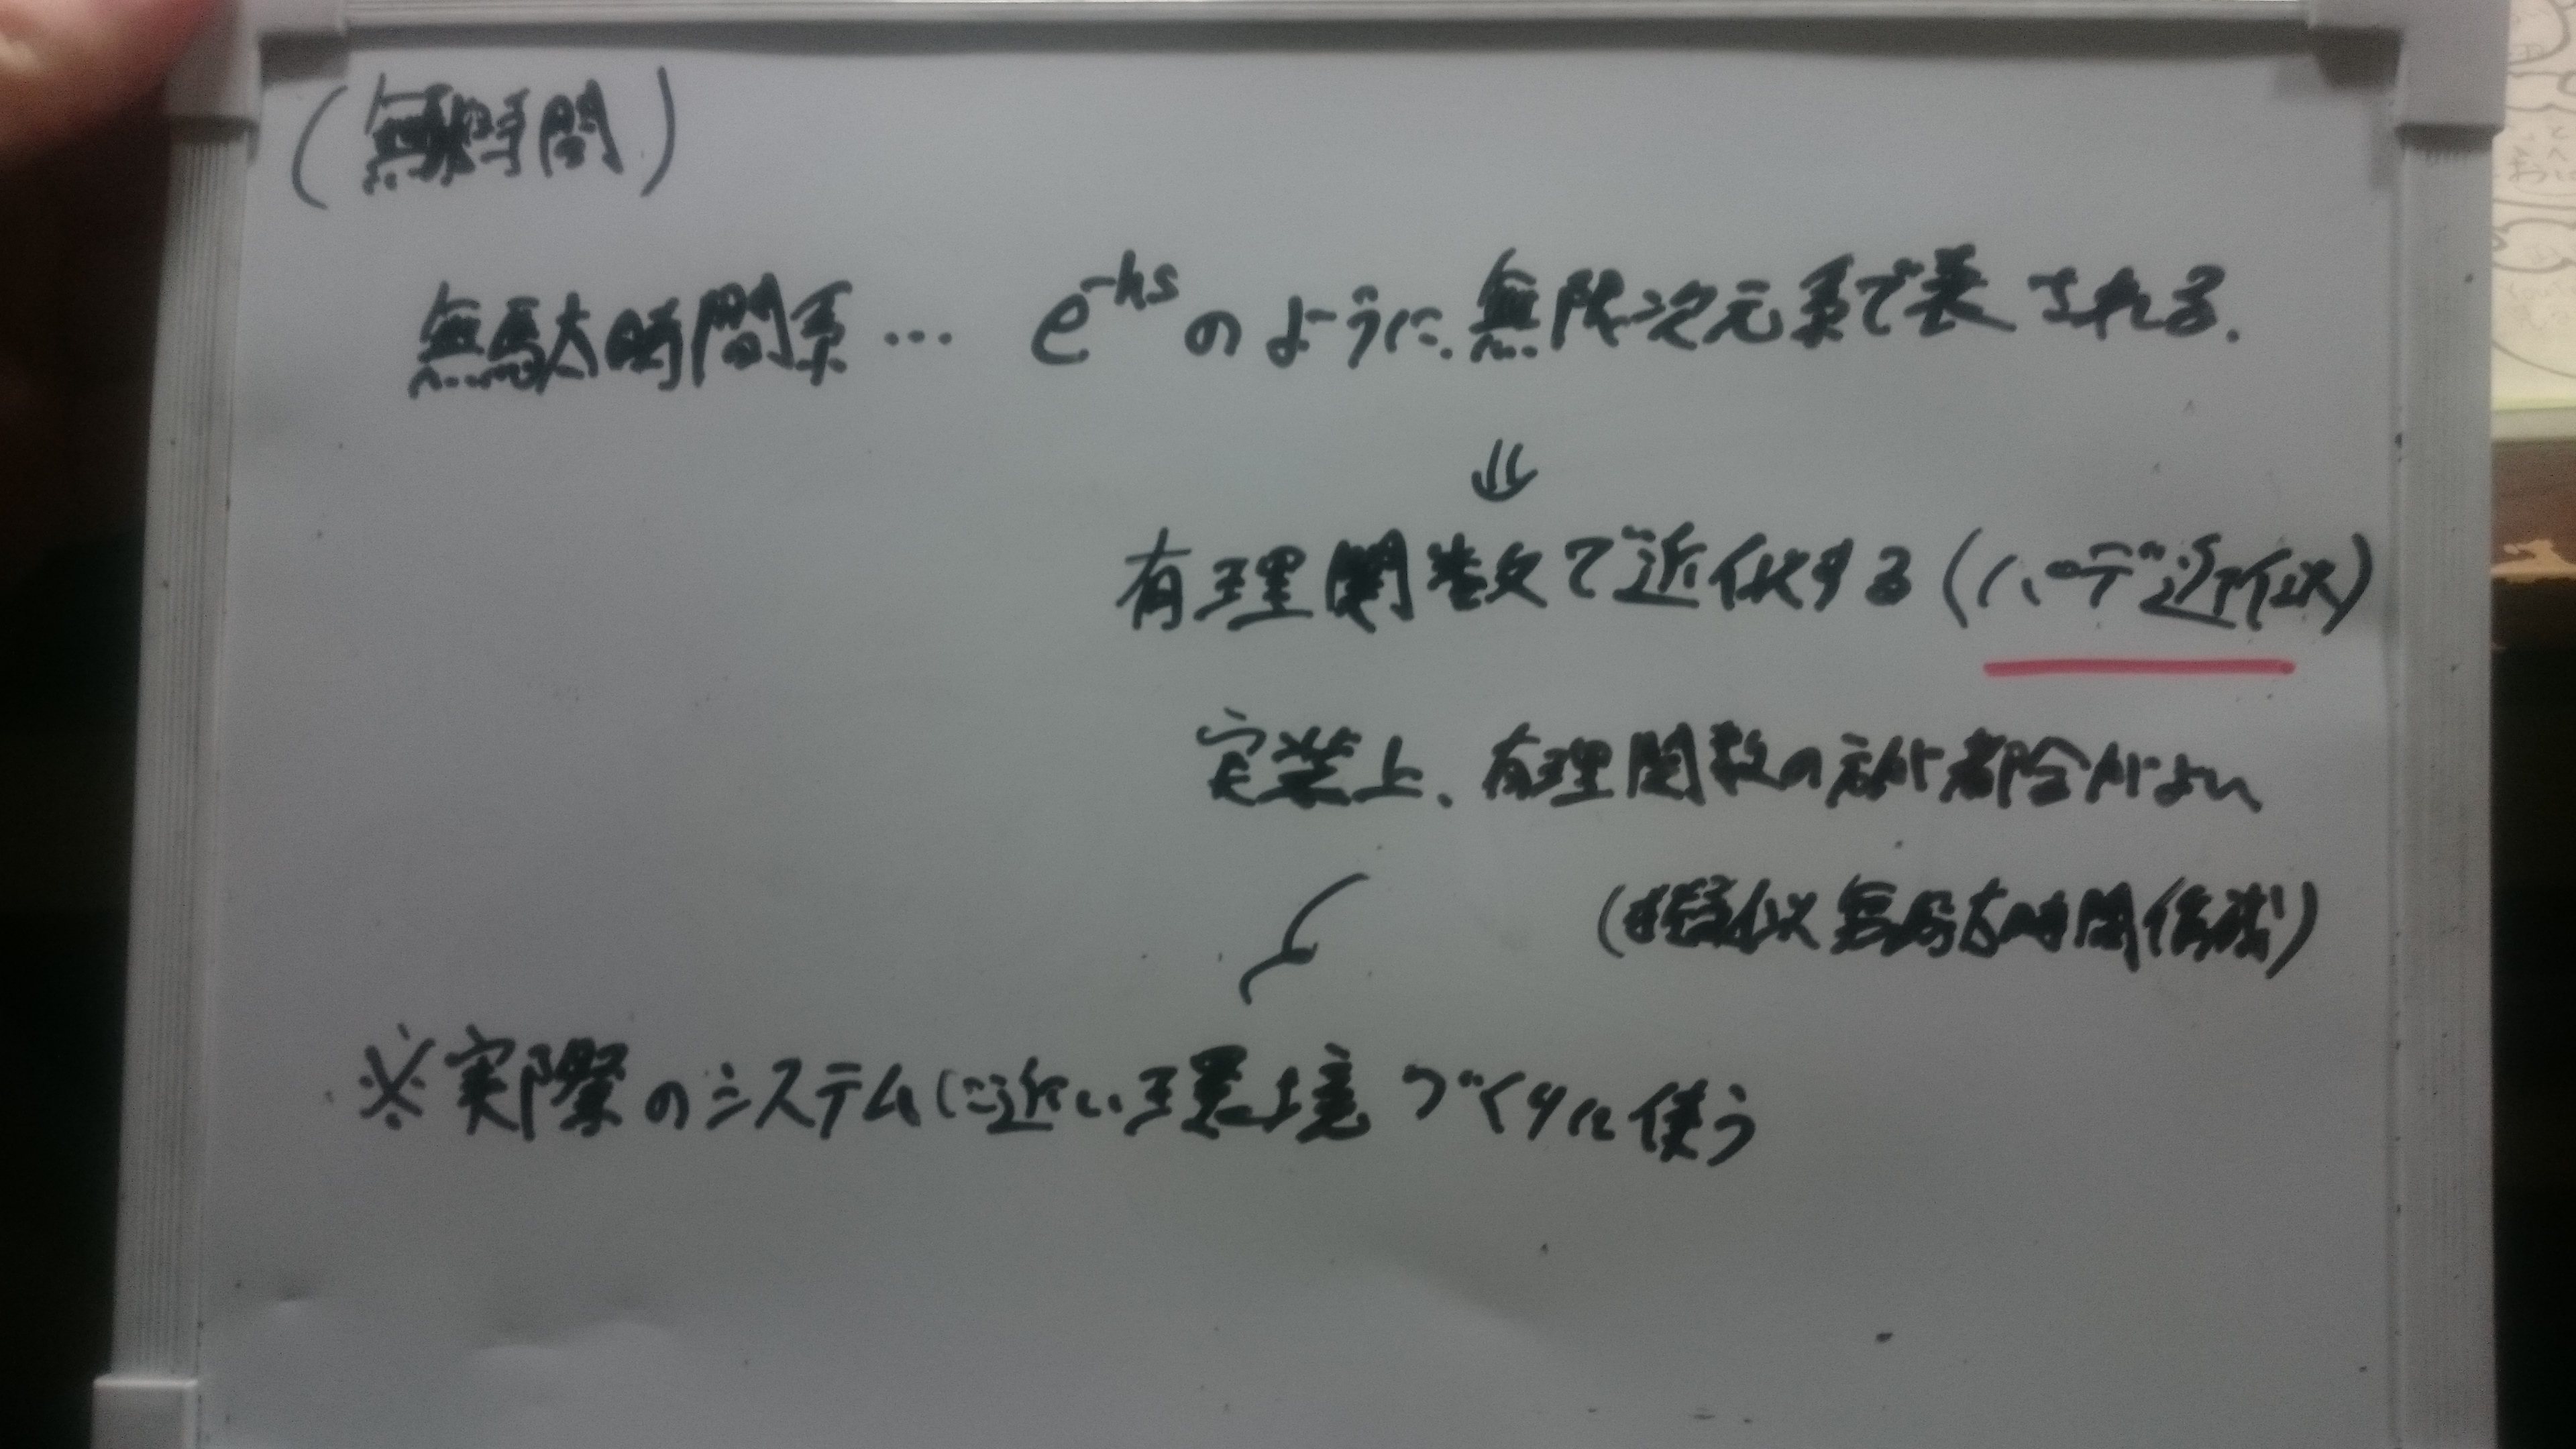 (無時間)
無駄時間系… e^-hs のように、無限次元系で表される.
⇓
有理関数で近似する (パデ近似)
実装上、有理関数の方が都合がよい
(擬似無駄時間係数)
※実際のシステムに近い環境づくりに使う